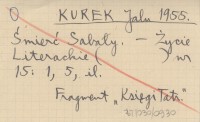 KUREK Jalu 1955.
Śmierć Sabały. — Życie
Literackie ( ) nr
15: 1, 5, il.
Fragment „Księgi Tatr."